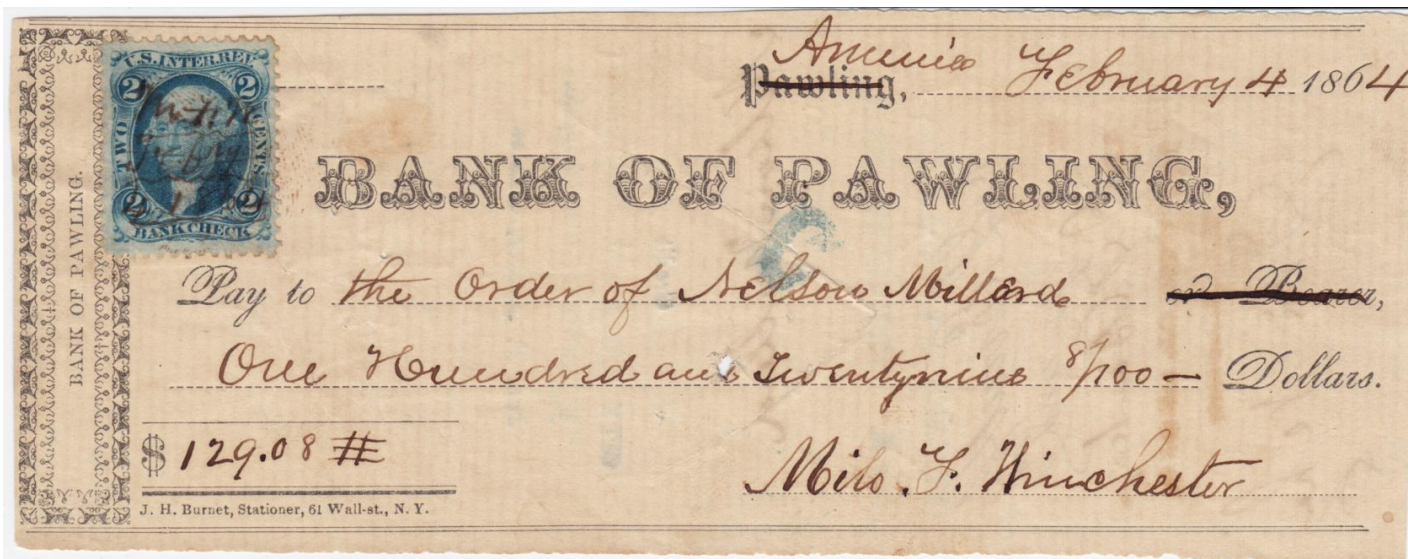 U.S. INTER. REV.
2 2
TWO CENTS
2 2
BANK CHECK
Amenia
Pawling, February 4 1864
BANK OF PAWLING,
BANK OF PAWLING.
Pay to the Order of Nelson Millard or Bearer,
One Hundred and Twentynine 8/100 — Dollars.
$ 129.08 #
Milo. F. Winchester
J. H. Burnet, Stationer, 61 Wall-st., N. Y.